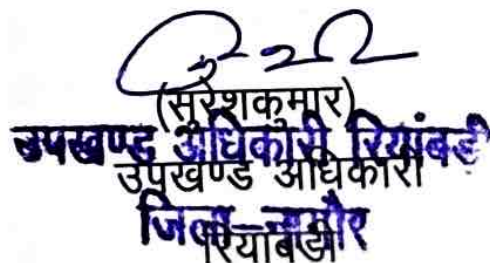 (सुरेशकुमार)
उपखण्ड अधिकारी रियांबडी
उपखण्ड अधिकारी
जिला-नागौर
रियांबडी